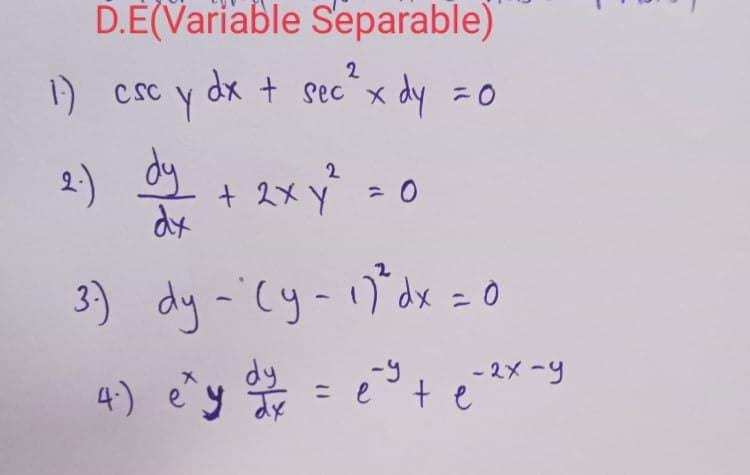 D.E(Variable Separable)
1.) csc y dx + sec² x dy = 0
2.) dy/dx + 2xy² = 0
3.) dy - (y - 1)² dx = 0
4.) eˣ y dy/dx = e⁻ʸ + e⁻²ˣ⁻ʸ